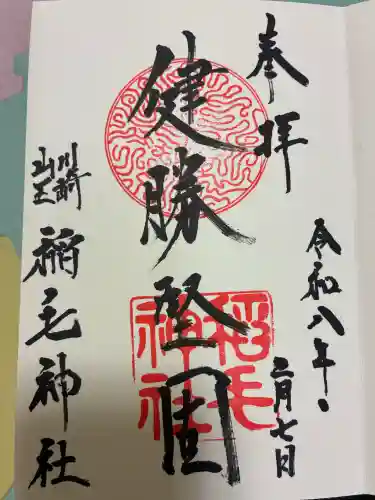 奉拝
令和八年
二月七日
健勝堅固
稲毛神社
川崎
山王
稲毛神社